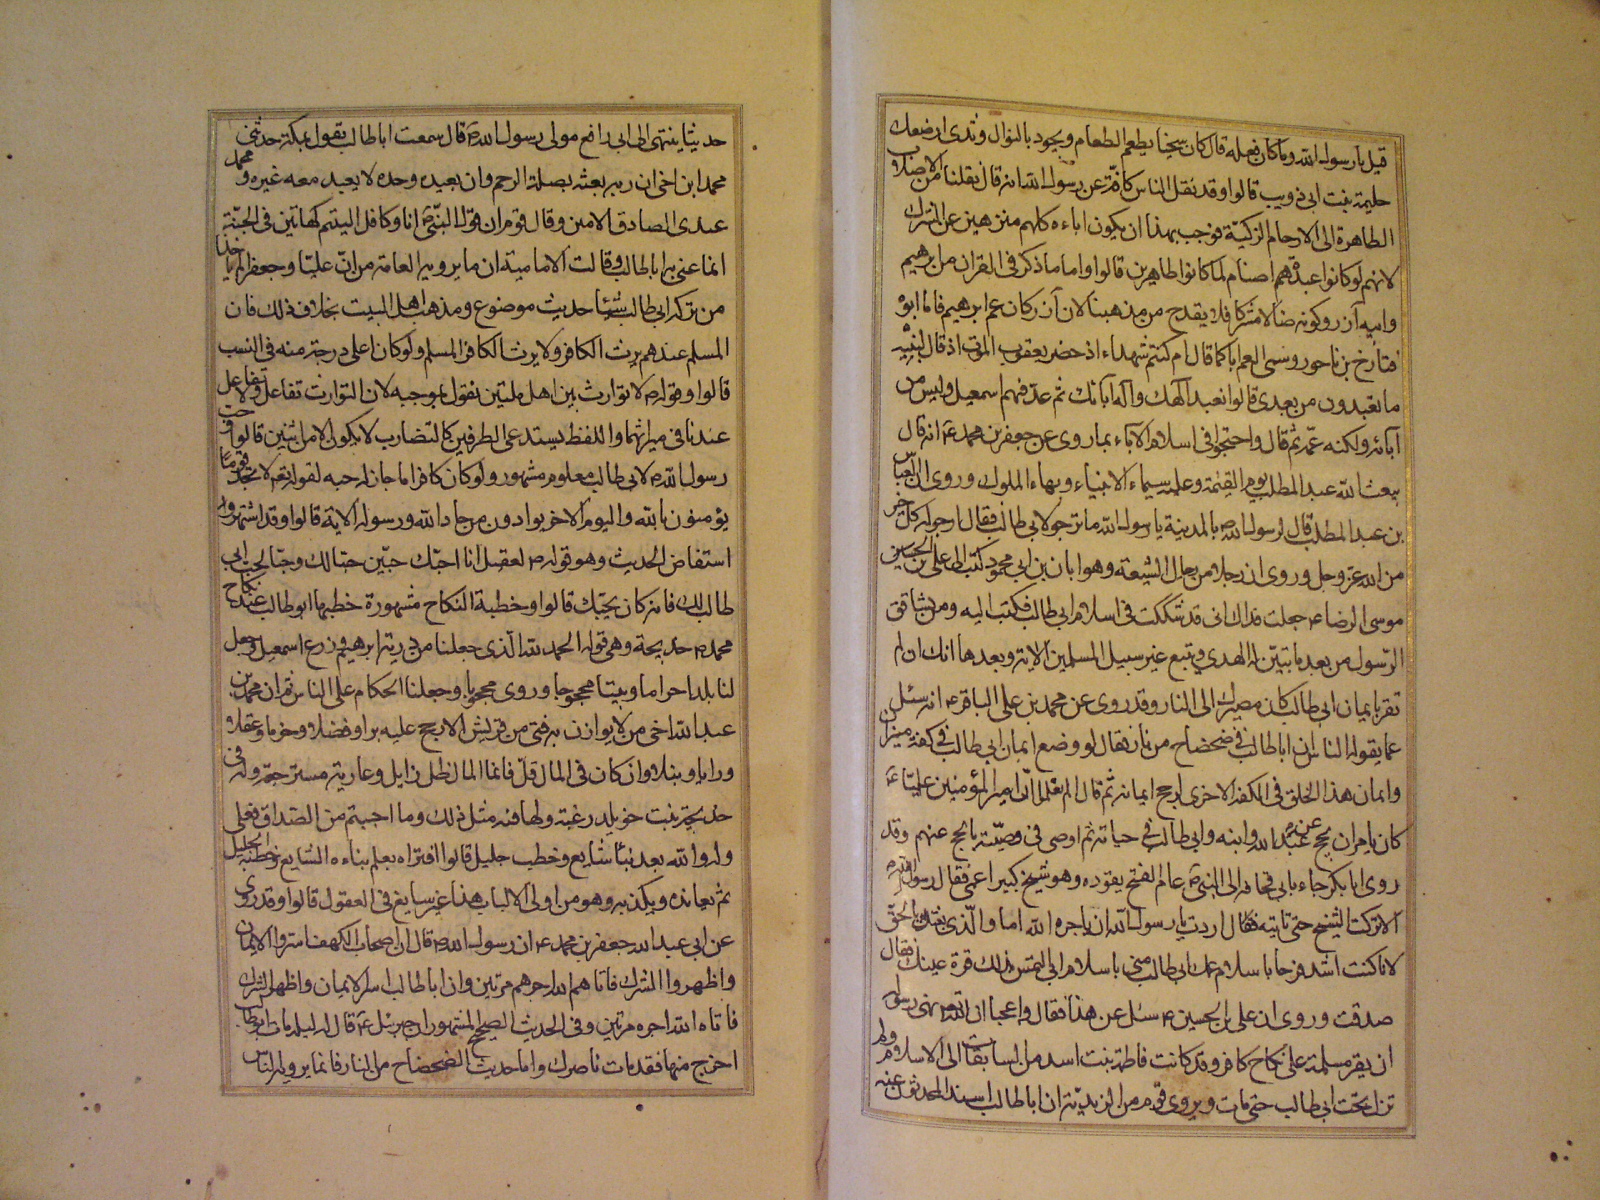 قيل يا رسول الله وما كان فعله قال كان سخيا يطعم الطعام ويجود بالنوال وثدى ارضعك
حليمة بنت ابى ذويب قالوا وقد نقل الناس كافة عن رسول الله انه قال نقلنا من الاصلاب
الطاهرة الى الارحام الزكية فوجب بهذا ان يكون اباءه كلهم منزهين عن الشرك
لانهم لو كانوا عبدة اصنام لما كانوا طاهرين قالوا واما ما ذكر فى القران من ابرهيم
وابيه آزر وكونه ضالا مشركا فلا يقدح من مذهبنا لان آزر كان عم ابرهيم فاما ابوه
فتارخ بن ناحور وسمى العم ابا كما قال ام كنتم شهداء اذ حضر يعقوب الموت اذ قال لبنيه
ما تعبدون من بعدى قالوا نعبد الهك واله آبائك ثم عد فيهم اسمعيل وليس من
آبائه ولكنه عمه ثم قال واحتجوا فى اسلام الاباء بما روى عن جعفر بن محمد ع انه قال
يبعث الله عبد المطلب يوم القيمة وعليه سيماء الانبياء وبهاء الملوك وروى ان العباس
بن عبد المطلب قال لرسول الله ص بالمدينة يا رسول الله ما ترجو لابى طالب فقال ارجو له كل خير
من الله عز وجل وروى ان رجلا من رجال الشيعة وهو ابان بن ابى محمود كتب الى على بن
موسى الرضا ع جعلت فداك انى قد شككت فى اسلام ابى طالب فكتب اليه ومن يشاقق
الرسول من بعد ما تبين له الهدى ويتبع غير سبيل المسلمين الاية وبعدها انك ان لم
تقر بايمان ابى طالب كان مصيرك الى النار وقد روى عن محمد بن على الباقر ع انه سئل
عما يقوله الناس ان ابا طالب فى ضحضاح من نار فقال لو وضع ايمان ابى طالب فى كفة ميزان
وايمان هذا الخلق فى الكفة الاخرى لرجح ايمانه ثم قال الم تعلموا ان امير المؤمنين عليا ع
كان يامر ان يحج عن عبد الله وابنه وابى طالب فى حياته ثم اوصى فى وصيته بالحج عنهم وقد
روى ابا بكر جاء بابى قحافه الى النبى ص عام الفتح يقوده وهو شيخ كبير اعمى فقال رسول الله ص
الا تركت الشيخ حتى تاتيه فقال اردت يا رسول الله ان ياجره الله اما والذى بعثك بالحق
لانا كنت اشد فرحا باسلام عمك ابى طالب منى باسلام ابى التمس بذلك قرة عينك فقال
صدقت وروى ان على بن الحسين ع سئل عن هذا فقال واعجبا ان الله نهى رسوله
ان يقر مسلمة على نكاح كافر وقد كانت فاطمة بنت اسد من السابقات الى الاسلام ولم
تزل تحت ابى طالب حتى مات ويروى قوم من الزيدية ان ابا طالب اسند المحدثون عنه
حديثا ينتهى الى ابى رافع مولى رسول الله ص قال سمعت ابا طالب يقول بمكة حدثنى
محمد ابن اخى ان ربه بعثه بصلة الرحم وان يعبده وحده لا يعبد معه غيره ومحمد
عندى الصادق الامين وقال قوم ان قول النبى ص انا وكافل اليتيم كهاتين فى الجنة
انما عنى به ابا طالب وقالت الامامية ان ما يرويه العامة من ان عليا وجعفرا لم ياخذا
من تركة ابى طالب شيئا حديث موضوع ومذهب اهل البيت بخلاف ذلك فان
المسلم عندهم يرث الكافر ولا يرث الكافر المسلم ولو كان اعلى درجة منه فى النسب
قالوا وقوله ص لا توارث بين اهل ملتين نقول بموجبه لان التوارث تفاعل ولا تفاعل
عندنا فى ميراثهما واللفظ يستدعى الطرفين كالتضارب لا يكون الا من اثنين قالوا وحب
رسول الله ص لابى طالب معلوم مشهور ولو كان كافرا ما جاز له حبه لقوله تع لا تجد قوما
يؤمنون بالله واليوم الاخر يوادون من حاد الله ورسوله الاية قالوا وقد اشتهر و
استفاض الحديث وهو قوله ص لعقيل انا احبك حبين حبا لك وحبا لحب ابى
طالب لك فانه كان يحبك قالوا وخطبة النكاح مشهورة خطبها ابو طالب عند نكاح
محمد ص خديجة وهى قوله الحمد لله الذى جعلنا من ذرية ابرهيم وزرع اسمعيل وجعل
لنا بلدا حراما وبيتا محجوجا وروى محجوبا وجعلنا الحكام على الناس ثم ان محمد بن
عبد الله اخى من لا يوازن به فتى من قريش الا رجح عليه برا وفضلا وحزما وعقلا
ورايا ونبلا وان كان فى المال قل فانما المال ظل زايل وعارية مسترجعة وله فى
خديجة بنت خويلد رغبة ولها فيه مثل ذلك وما احببتم من الصداق فعلى
وله والله بعد نبا شايع وخطب جليل قالوا افتراه يعلم نباءه الشايع وخطبه الجليل
ثم يعانده ويكذبه وهو من اولى الالباب هذا غير سايغ فى العقول قالوا وقد روى
عن ابى عبد الله جعفر بن محمد ع ان رسول الله ص قال ان اصحاب الكهف اسروا الايمان
واظهروا الشرك فاتاهم الله اجرهم مرتين وان ابا طالب اسر الايمان واظهر الشرك
فاتاه الله اجره مرتين وفى الحديث الصحيح المشهور ان جبرئيل ع قال له ليلة مات ابو طالب
اخرج منها فقد مات ناصرك واما حديث الضحضاح من النار فانما يرويه الناس